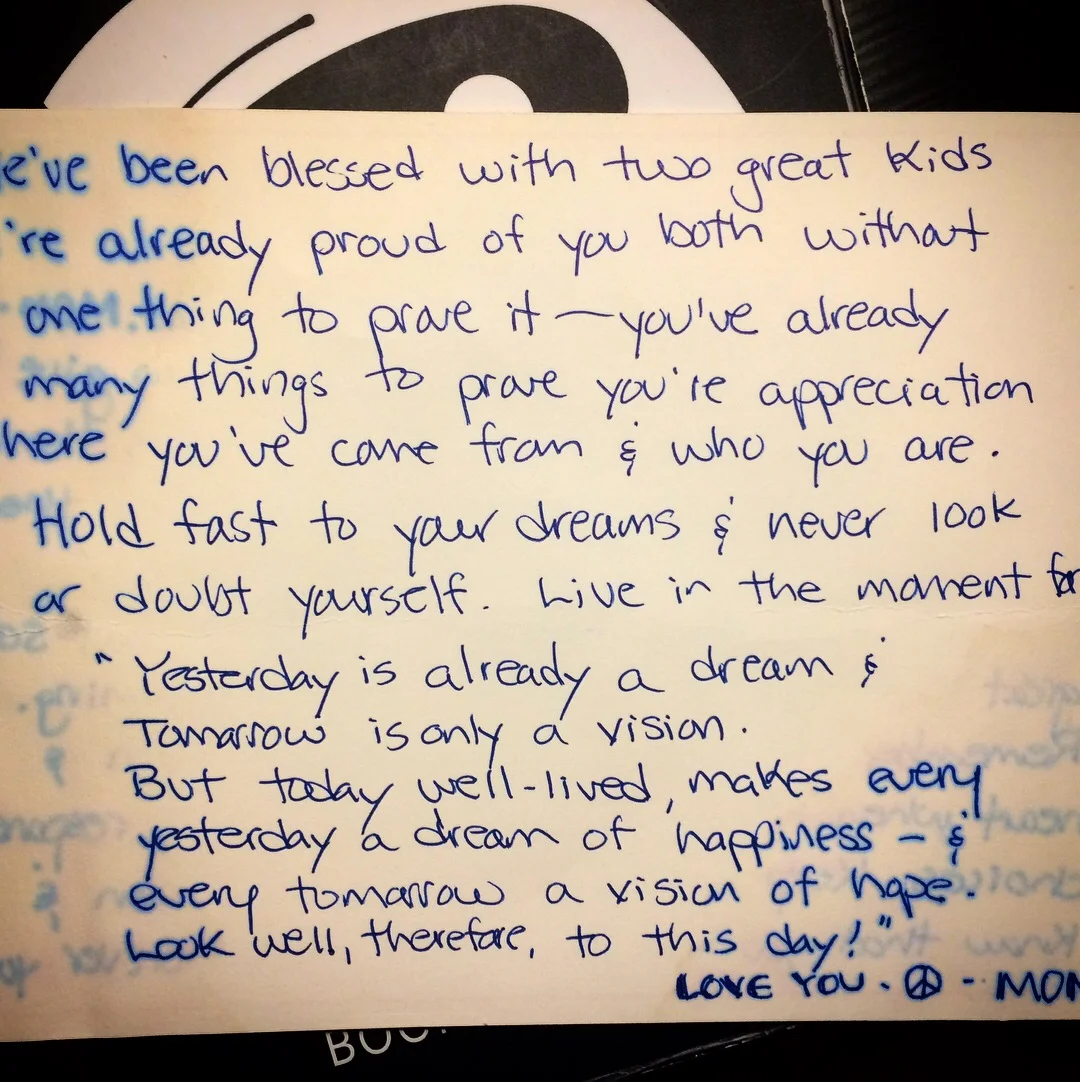 e've been blessed with two great kids
're already proud of you both without
one thing to prove it — you've already
many things to prove you're appreciation
here you've come from & who you are.
Hold fast to your dreams & never look
or doubt yourself. Live in the moment for
"Yesterday is already a dream &
Tomorrow is only a vision.
But today well-lived, makes every
yesterday a dream of happiness - &
every tomorrow a vision of hope.
Look well, therefore, to this day!"
LOVE YOU. ☮ - MOM
BOO